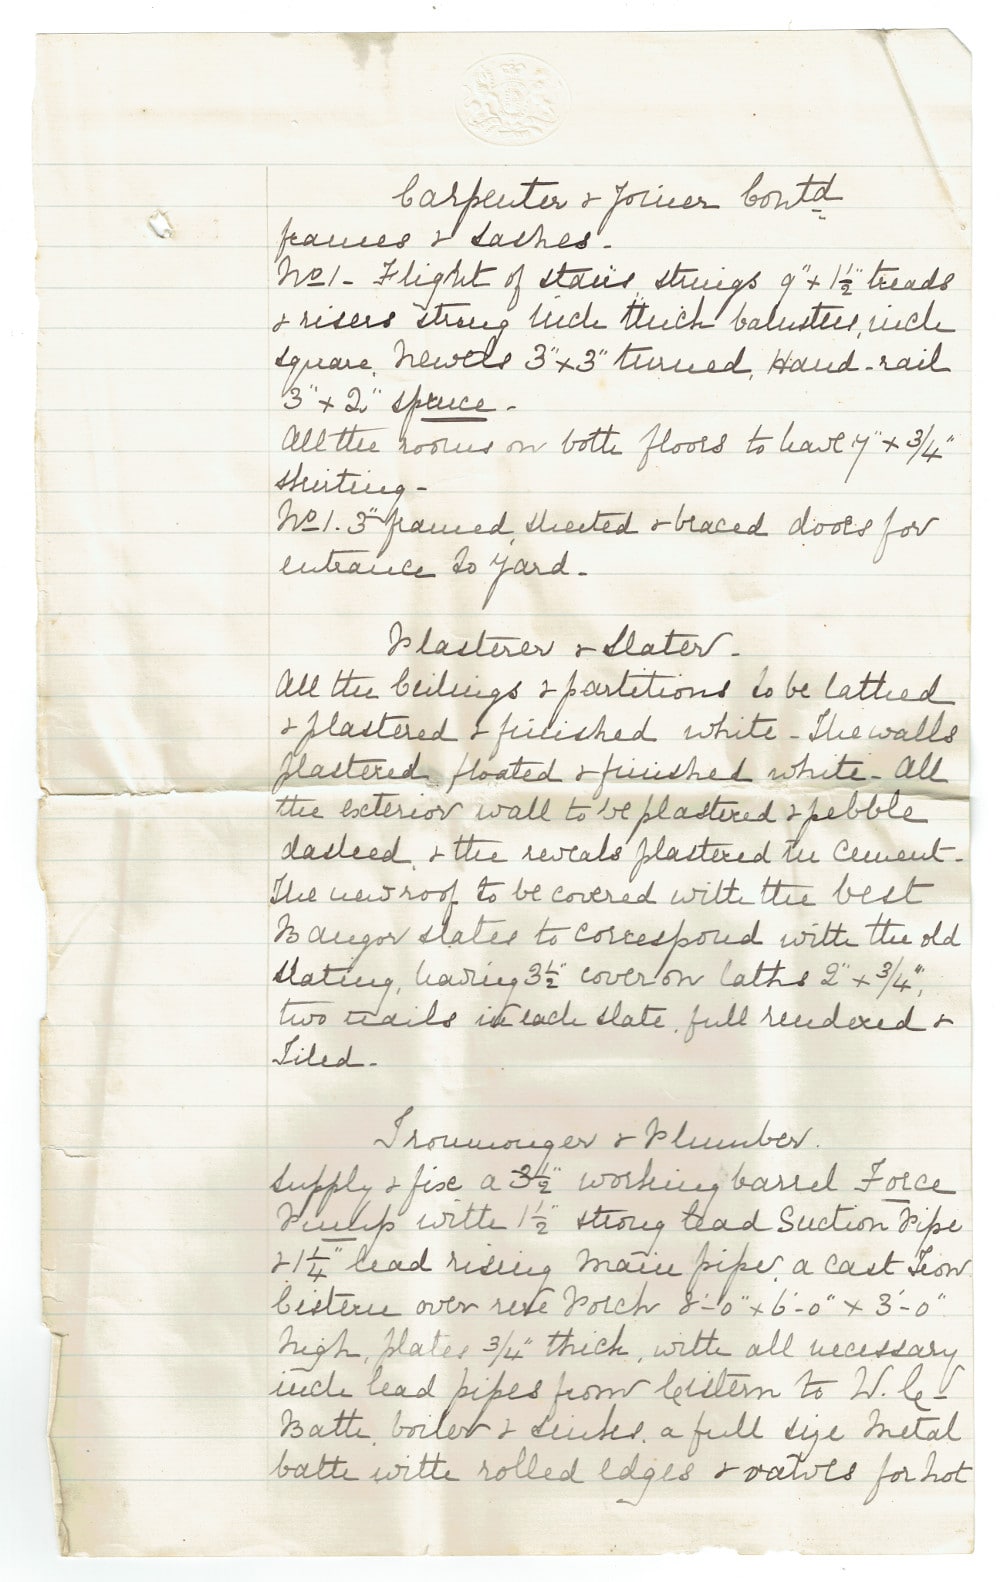 Carpenter & Joiner Contd
frames & sashes -
No 1 - Flight of stairs, strings 9" x 1½" treads
& risers strong inch thick balusters, inch
square, Newels 3" x 3" turned, Hand-rail
3" x 2" spruce -
All the rooms on both floors to have 7" x 3/4"
skirting -
No 1. 3" framed, sheeted & braced doors for
entrance to Yard -
Plasterer & Slater -
All the Ceilings & partitions to be lathed
& plastered & finished white - The walls
plastered floated & finished white - All
the exterior wall to be plastered & pebble
dashed, & the reveals plastered in Cement -
The new roof to be covered with the best
Bangor slates to correspond with the old
slating, having 3½" cover on laths 2" x 3/4",
two nails in each slate, full rendered &
Tiled -
Ironmonger & Plumber.
Supply & fix a 3½" working barrel Force
Pump with 1½" strong lead Suction Pipe
& 1¼" lead rising Main pipe, a cast Iron
Cistern over Porch 8'-0" x 6'-0" x 3'-0"
high, plates 3/4" thick, with all necessary
inch lead pipes from Cistern to W.C -
Bath, boiler & Sinks, a full size Metal
bath with rolled edges & valves for hot